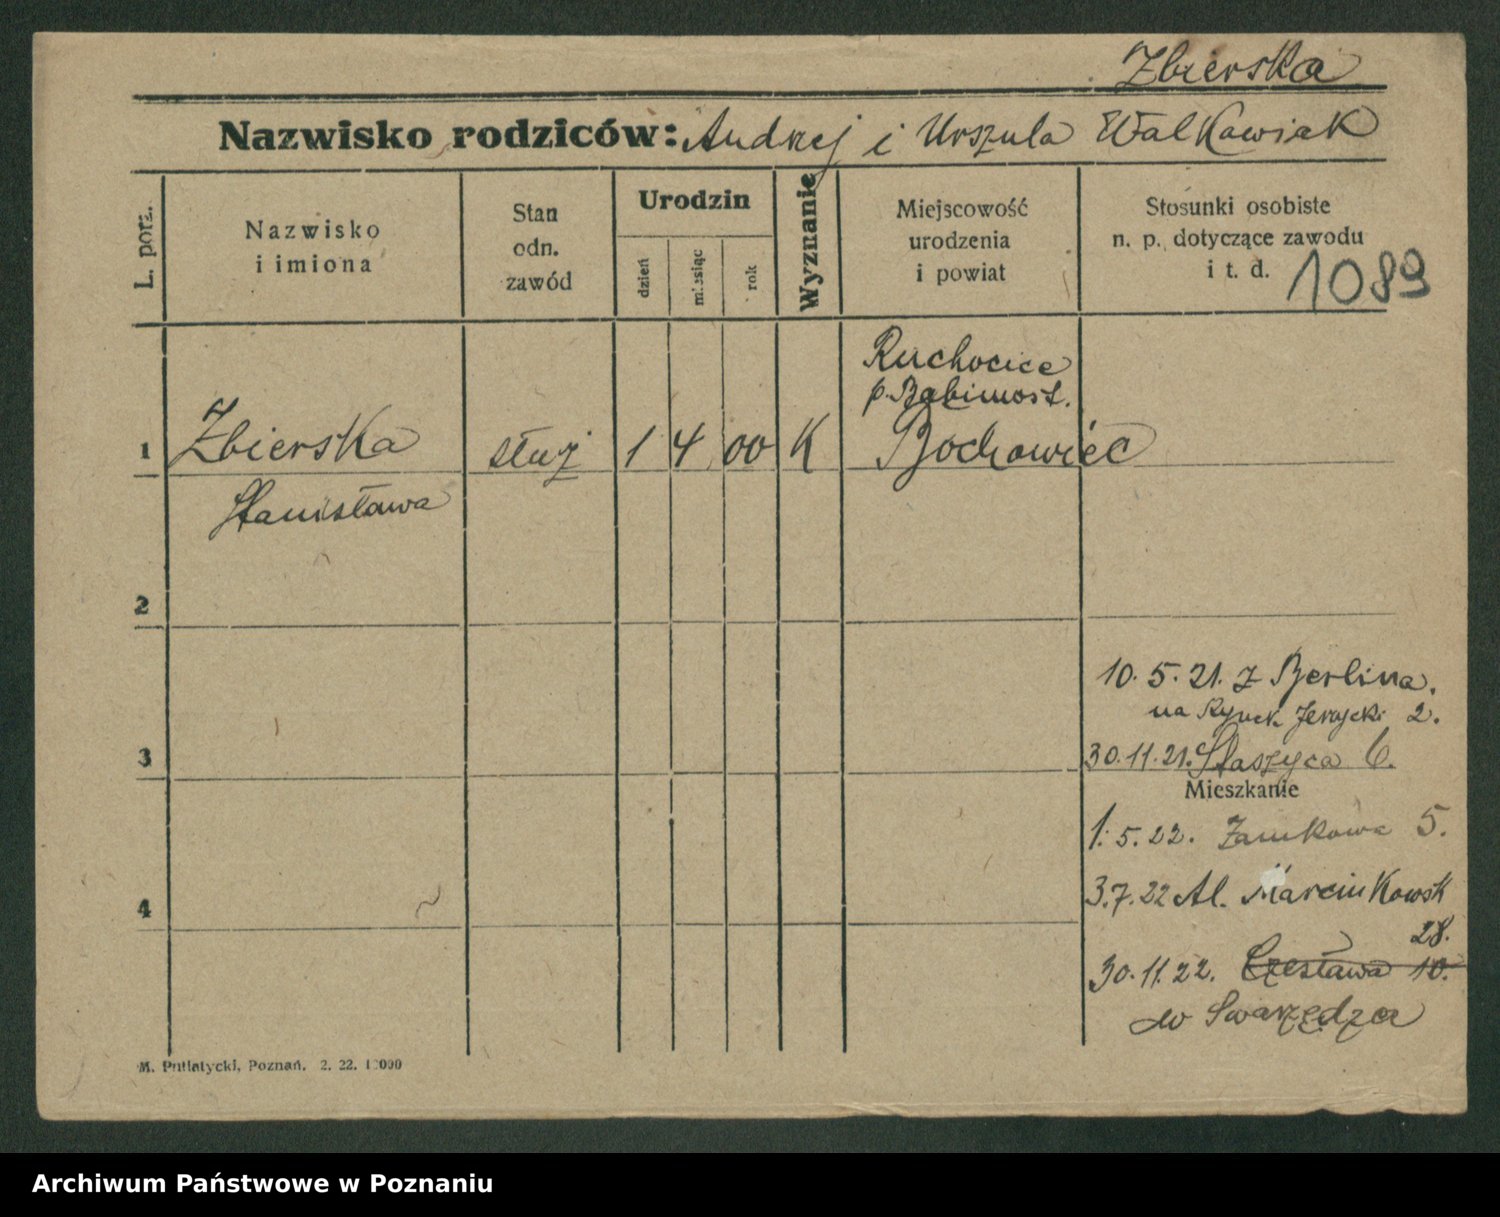 Zbierska
Nazwisko rodziców: Andrzej i Urszula Walkowiak
L. porz.
Nazwisko
i imiona
Stan
odn.
zawód
Urodzin
dzień
miesiąc
rok
Wyznanie
Miejscowość
urodzenia
i powiat
Stosunki osobiste
n. p. dotyczące zawodu
i t. d.
1089
Ruchocice
p. Babimost.
1 Zbierska służ 1 4 00 K
Stanisława
2
10. 5. 21. z Berlina.
na Rynek Jerzycki 2.
3
30.11.21. Staszyca 6.
Mieszkanie
1. 5. 22. Zamkowa 5.
4
3.7.22 Al. Marcinkowsk
28.
30.11.22. Czesława 10.
w Swarzędza
M. Putiatycki, Poznań. 2. 22. 10000
Archiwum Państwowe w Poznaniu